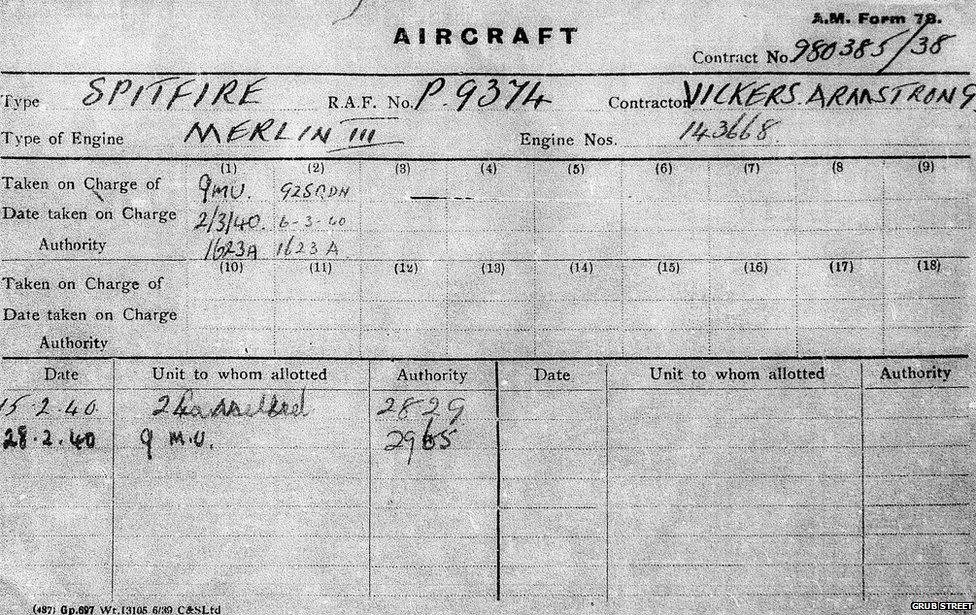 A.M. Form 78.
AIRCRAFT
Contract No. 980385/38
Type SPITFIRE R.A.F. No. P.9374 Contractor VICKERS. ARMSTRONG
Type of Engine MERLIN III Engine Nos. 143668.
(1) (2) (3) (4) (5) (6) (7) (8 (9)
Taken on Charge of 9 MU. 92 SQDN
Date taken on Charge 2/3/40. 6-3-40
Authority 1623A 1623 A
(10) (11) (12) (13) (14) (15) (16) (17) (18)
Taken on Charge of
Date taken on Charge
Authority
Date Unit to whom allotted Authority Date Unit to whom allotted Authority
15.2.40. 2829
28.2.40 9 M.U. 2965
(487) Gp.697 Wt.13105 6/39 C&SLtd
GRUB STREET